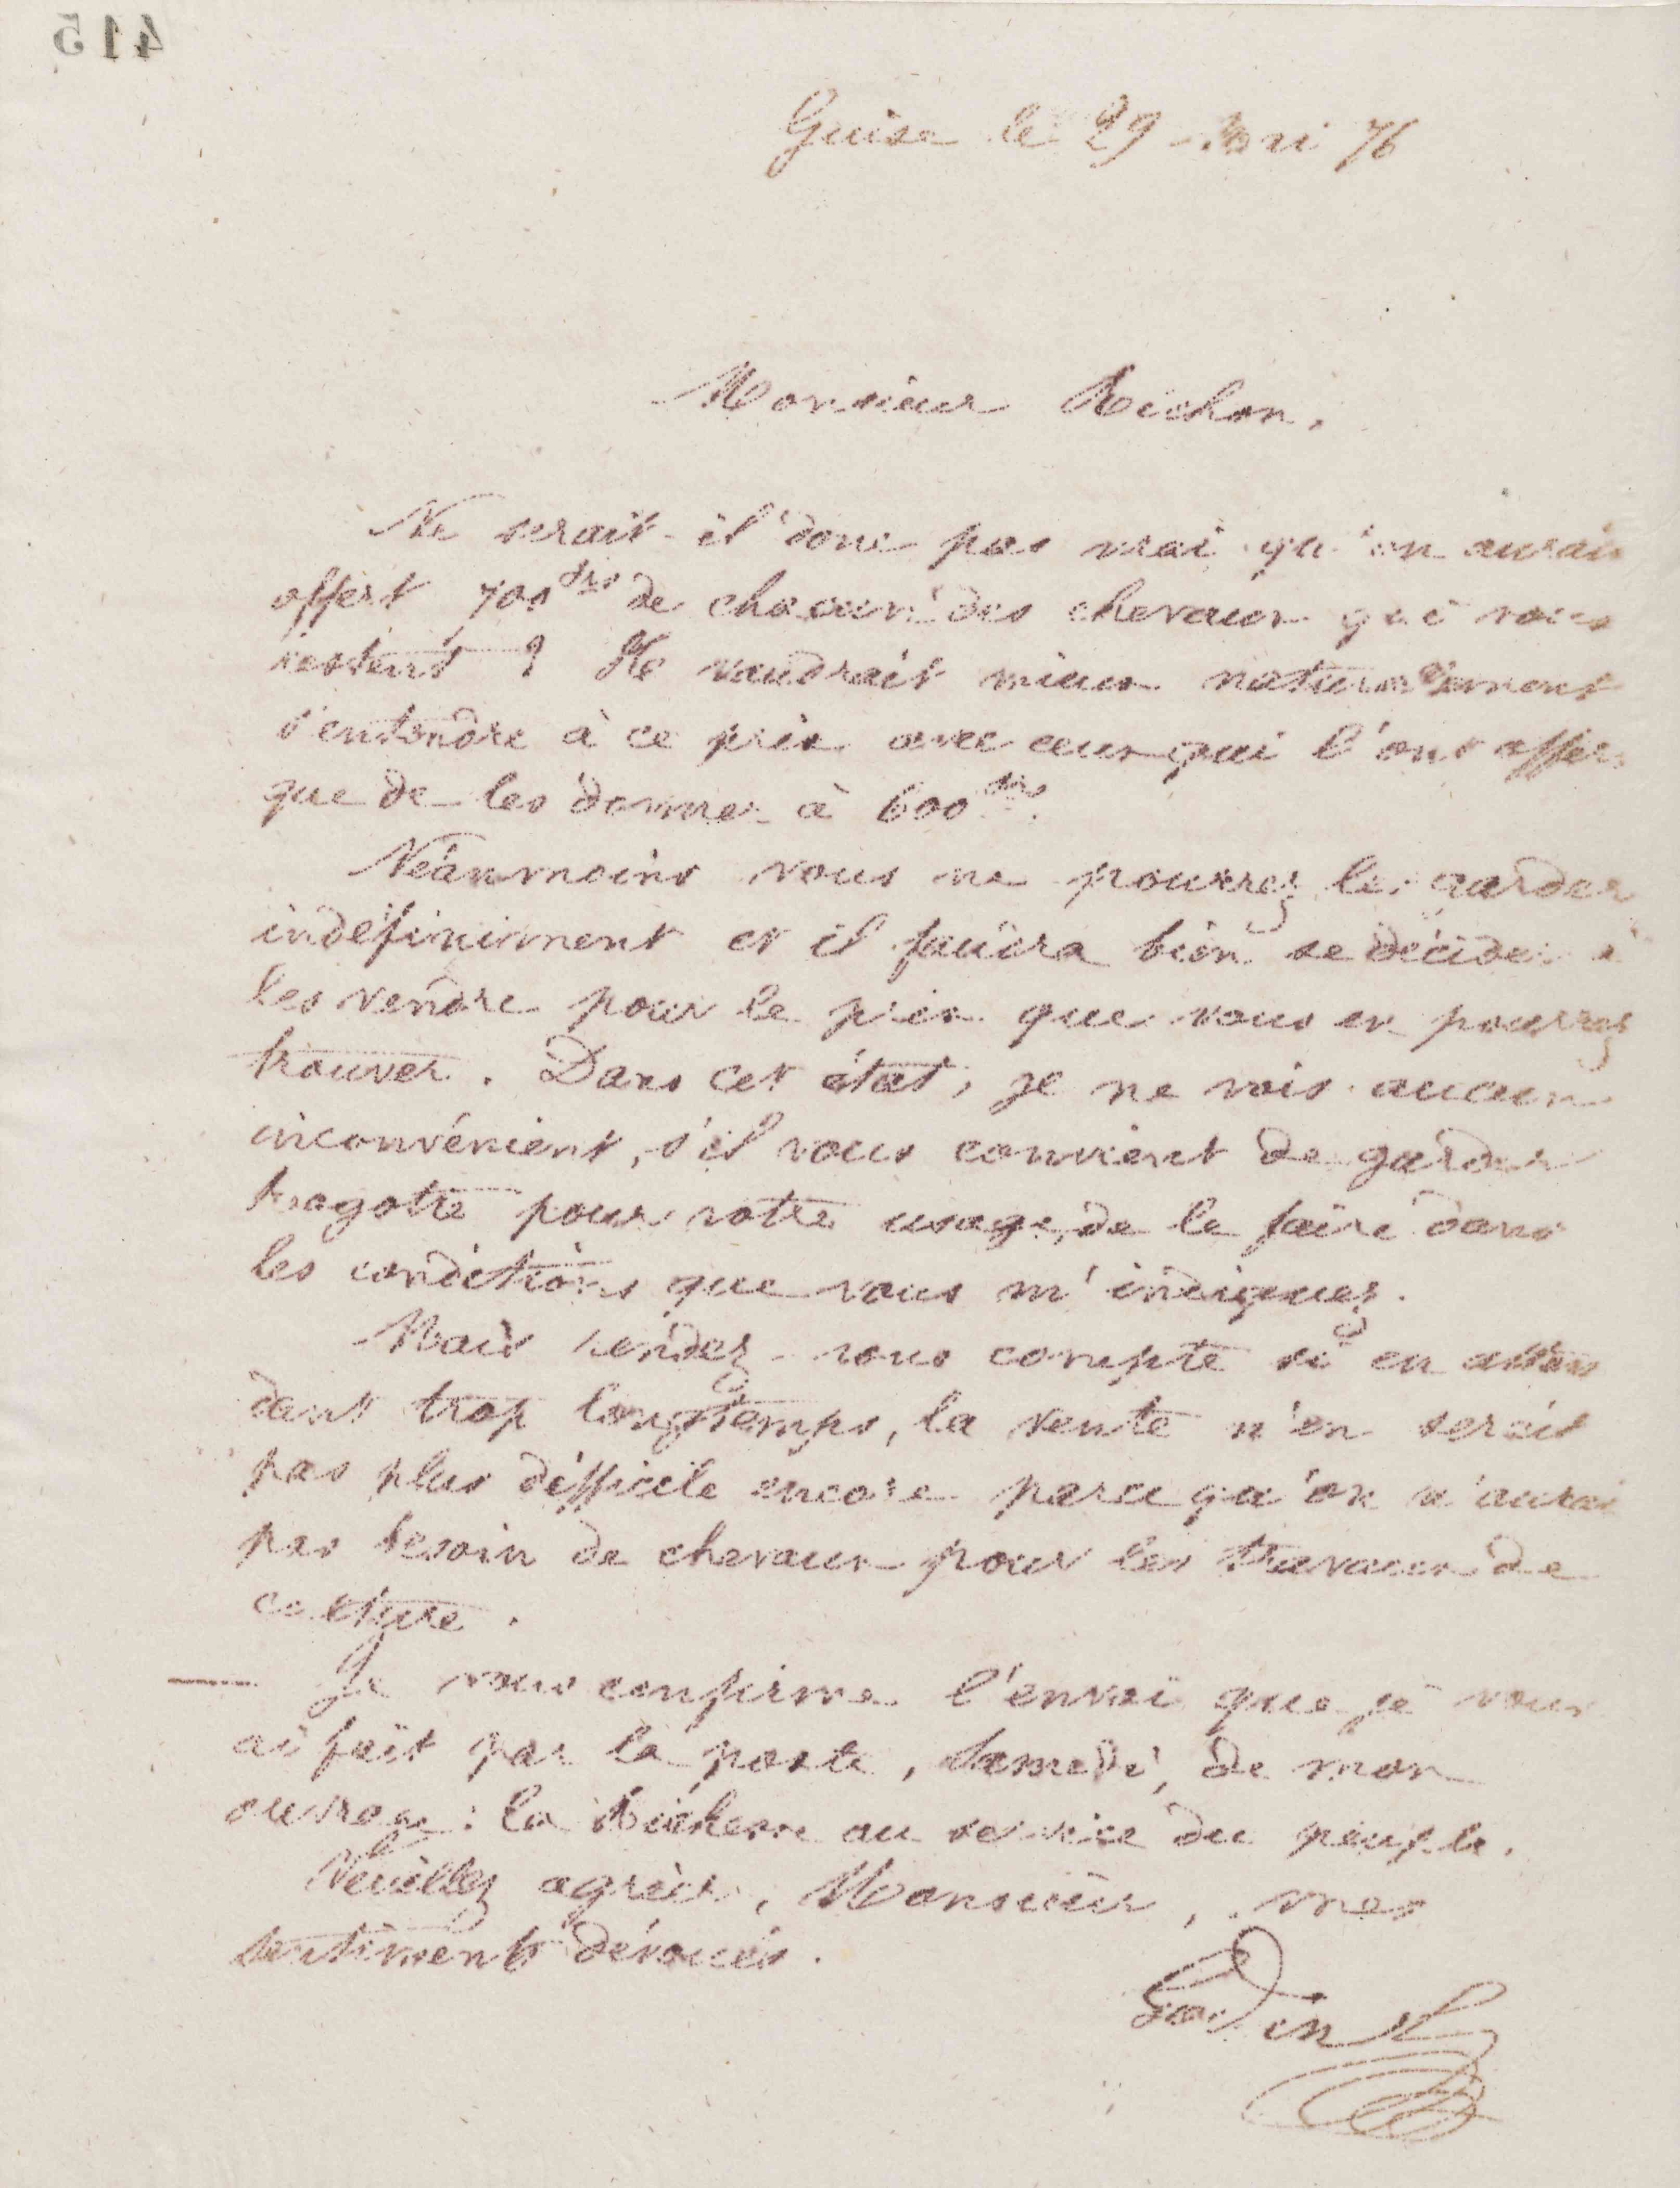 415
Guise le 29 Mai 76
Monsieur Richon,
Ne serait-il donc pas vrai qu'on aurait
offert 700 frs de chacun des chevaux qui vous
restent ? Il vaudrait mieux naturellement
s'entendre à ce prix avec ceux qui l'ont offert
que de les donner à 600 frs.
Néanmoins vous ne pourrez les garder
indéfiniment et il faudra bien se décider à
les vendre pour le prix que vous en pourrez
trouver. Dans cet état, je ne vois aucun
inconvénient, s'il vous convient de garder
pour votre usage, de le faire dans
les conditions que vous m'indiquez.
Mais rendez-vous compte si en atten
dant trop longtemps, la vente n'en serait
pas plus difficile encore parce qu'on n'aurait
pas besoin de chevaux pour les travaux de
culture.
— Je vous confirme l'envoi que je vous
ai fait par la poste, Samedi, de mon
ouvrage : la Richesse au service du peuple.
Veuillez agréer, Monsieur, mes
sentiments dévoués.
Godin